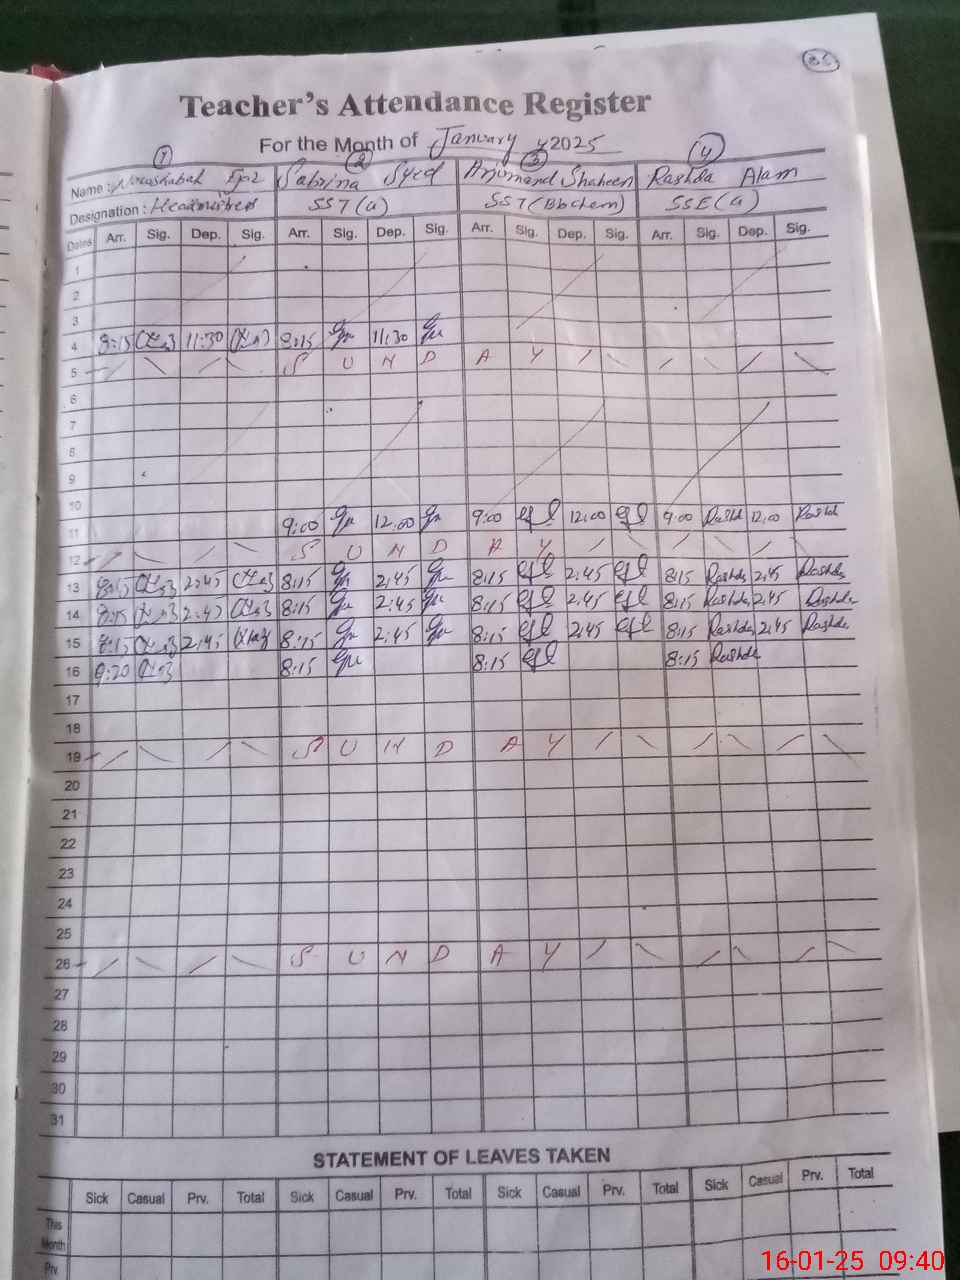 Teacher's Attendance Register
For the Month of January 2025
1 2 3 4
Name : Sabrina Syed Arjumand Shaheen Rashda Alam
Designation : Headmistress SST(G) SST(Bbchem) SSE(G)
Dates Arr. Sig. Dep. Sig. Arr. Sig. Dep. Sig. Arr. Sig. Dep. Sig. Arr. Sig. Dep. Sig.
1
2
3
4 8:15 11:30 8:15 11:30
5 S U N D A Y
6
7
8
9
10
11 9:00 12:00 9:00 12:00 9:00 Rashda 12:00 Rashda
12 S U N D A Y
13 8:15 2:45 8:15 2:45 8:15 2:45 8:15 Rashda 2:45 Rashda
14 8:15 2:45 8:15 2:45 8:15 2:45 8:15 Rashda 2:45 Rashda
15 8:15 2:45 8:15 2:45 8:15 2:45 8:15 Rashda 2:45 Rashda
16 9:20 8:15 8:15 8:15 Rashda
17
18
19 S U N D A Y
20
21
22
23
24
25
26 S U N D A Y
27
28
29
30
31
STATEMENT OF LEAVES TAKEN
Sick Casual Prv. Total Sick Casual Prv. Total Sick Casual Prv. Total Sick Casual Prv. Total
This
Month
Prv.
16-01-25 09:40